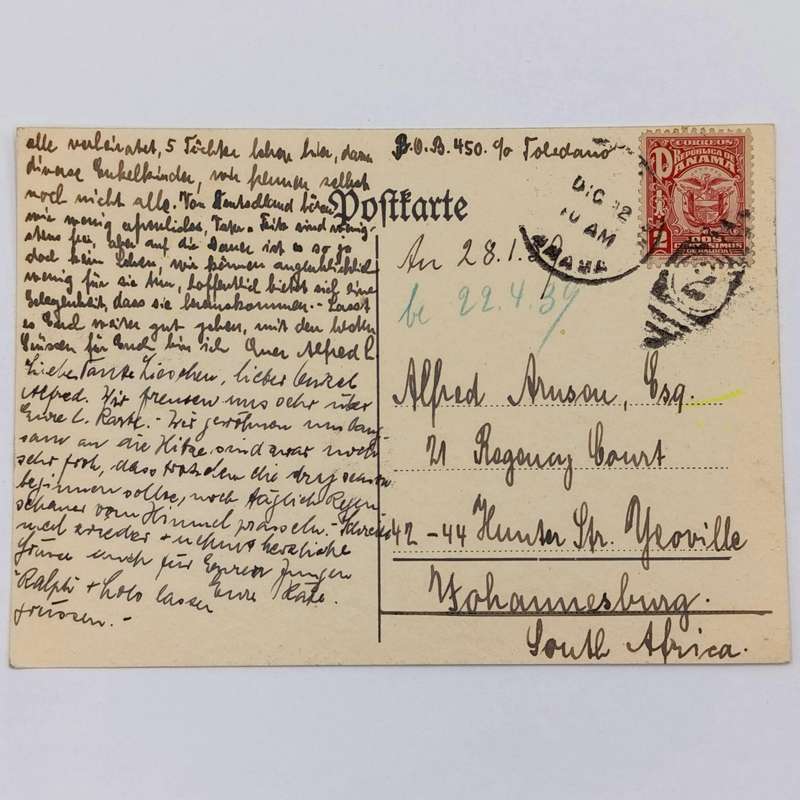 alle verheiratet, 5 Töchter leben hier, dazu
diverse Enkelkinder, wir kennen selbst
noch nicht alle. Von Deutschland hören
wir wenig erfreuliches, Vater + Fritz sind wenig-
stens frei, aber auf die Dauer ist es so ja
doch kein Leben, wir können augenblicklich
wenig für sie tun, hoffentlich bietet sich eine
Gelegenheit, dass sie herauskommen. - Lasst
es Euch weiter gut gehen, mit den besten
Grüssen für Euch bin ich Euer Alfred L.
Liebe Tante Lieschen, lieber Onkel
Alfred. Wir freuen uns sehr über
Eure l. Karte. - Wir gewöhnen uns lang-
sam an die Hitze, sind zwar noch
sehr froh, dass trotzdem die dry season
beginnen sollte, noch täglich Regen-
schauer vom Himmel prasseln. - Schreibt
mal wieder + nehmt herzliche
Grüsse auch für Euren Jungen
Eure Käte.
Ralph + Lolo lassen
grüssen. -
P.O.B. 450. c/o Toledano
Postkarte
An 28.1.
be 22.4.39
Alfred Aruson, Esq.
21 Regency Court
42-44 Hunter Str. Yeoville
Johannesburg.
South Africa.
DIC 12
10 AM
PANAMA
CORREOS
REPUBLICA DE
PANAMA
2
DOS
CENTESIMOS
DE BALBOA